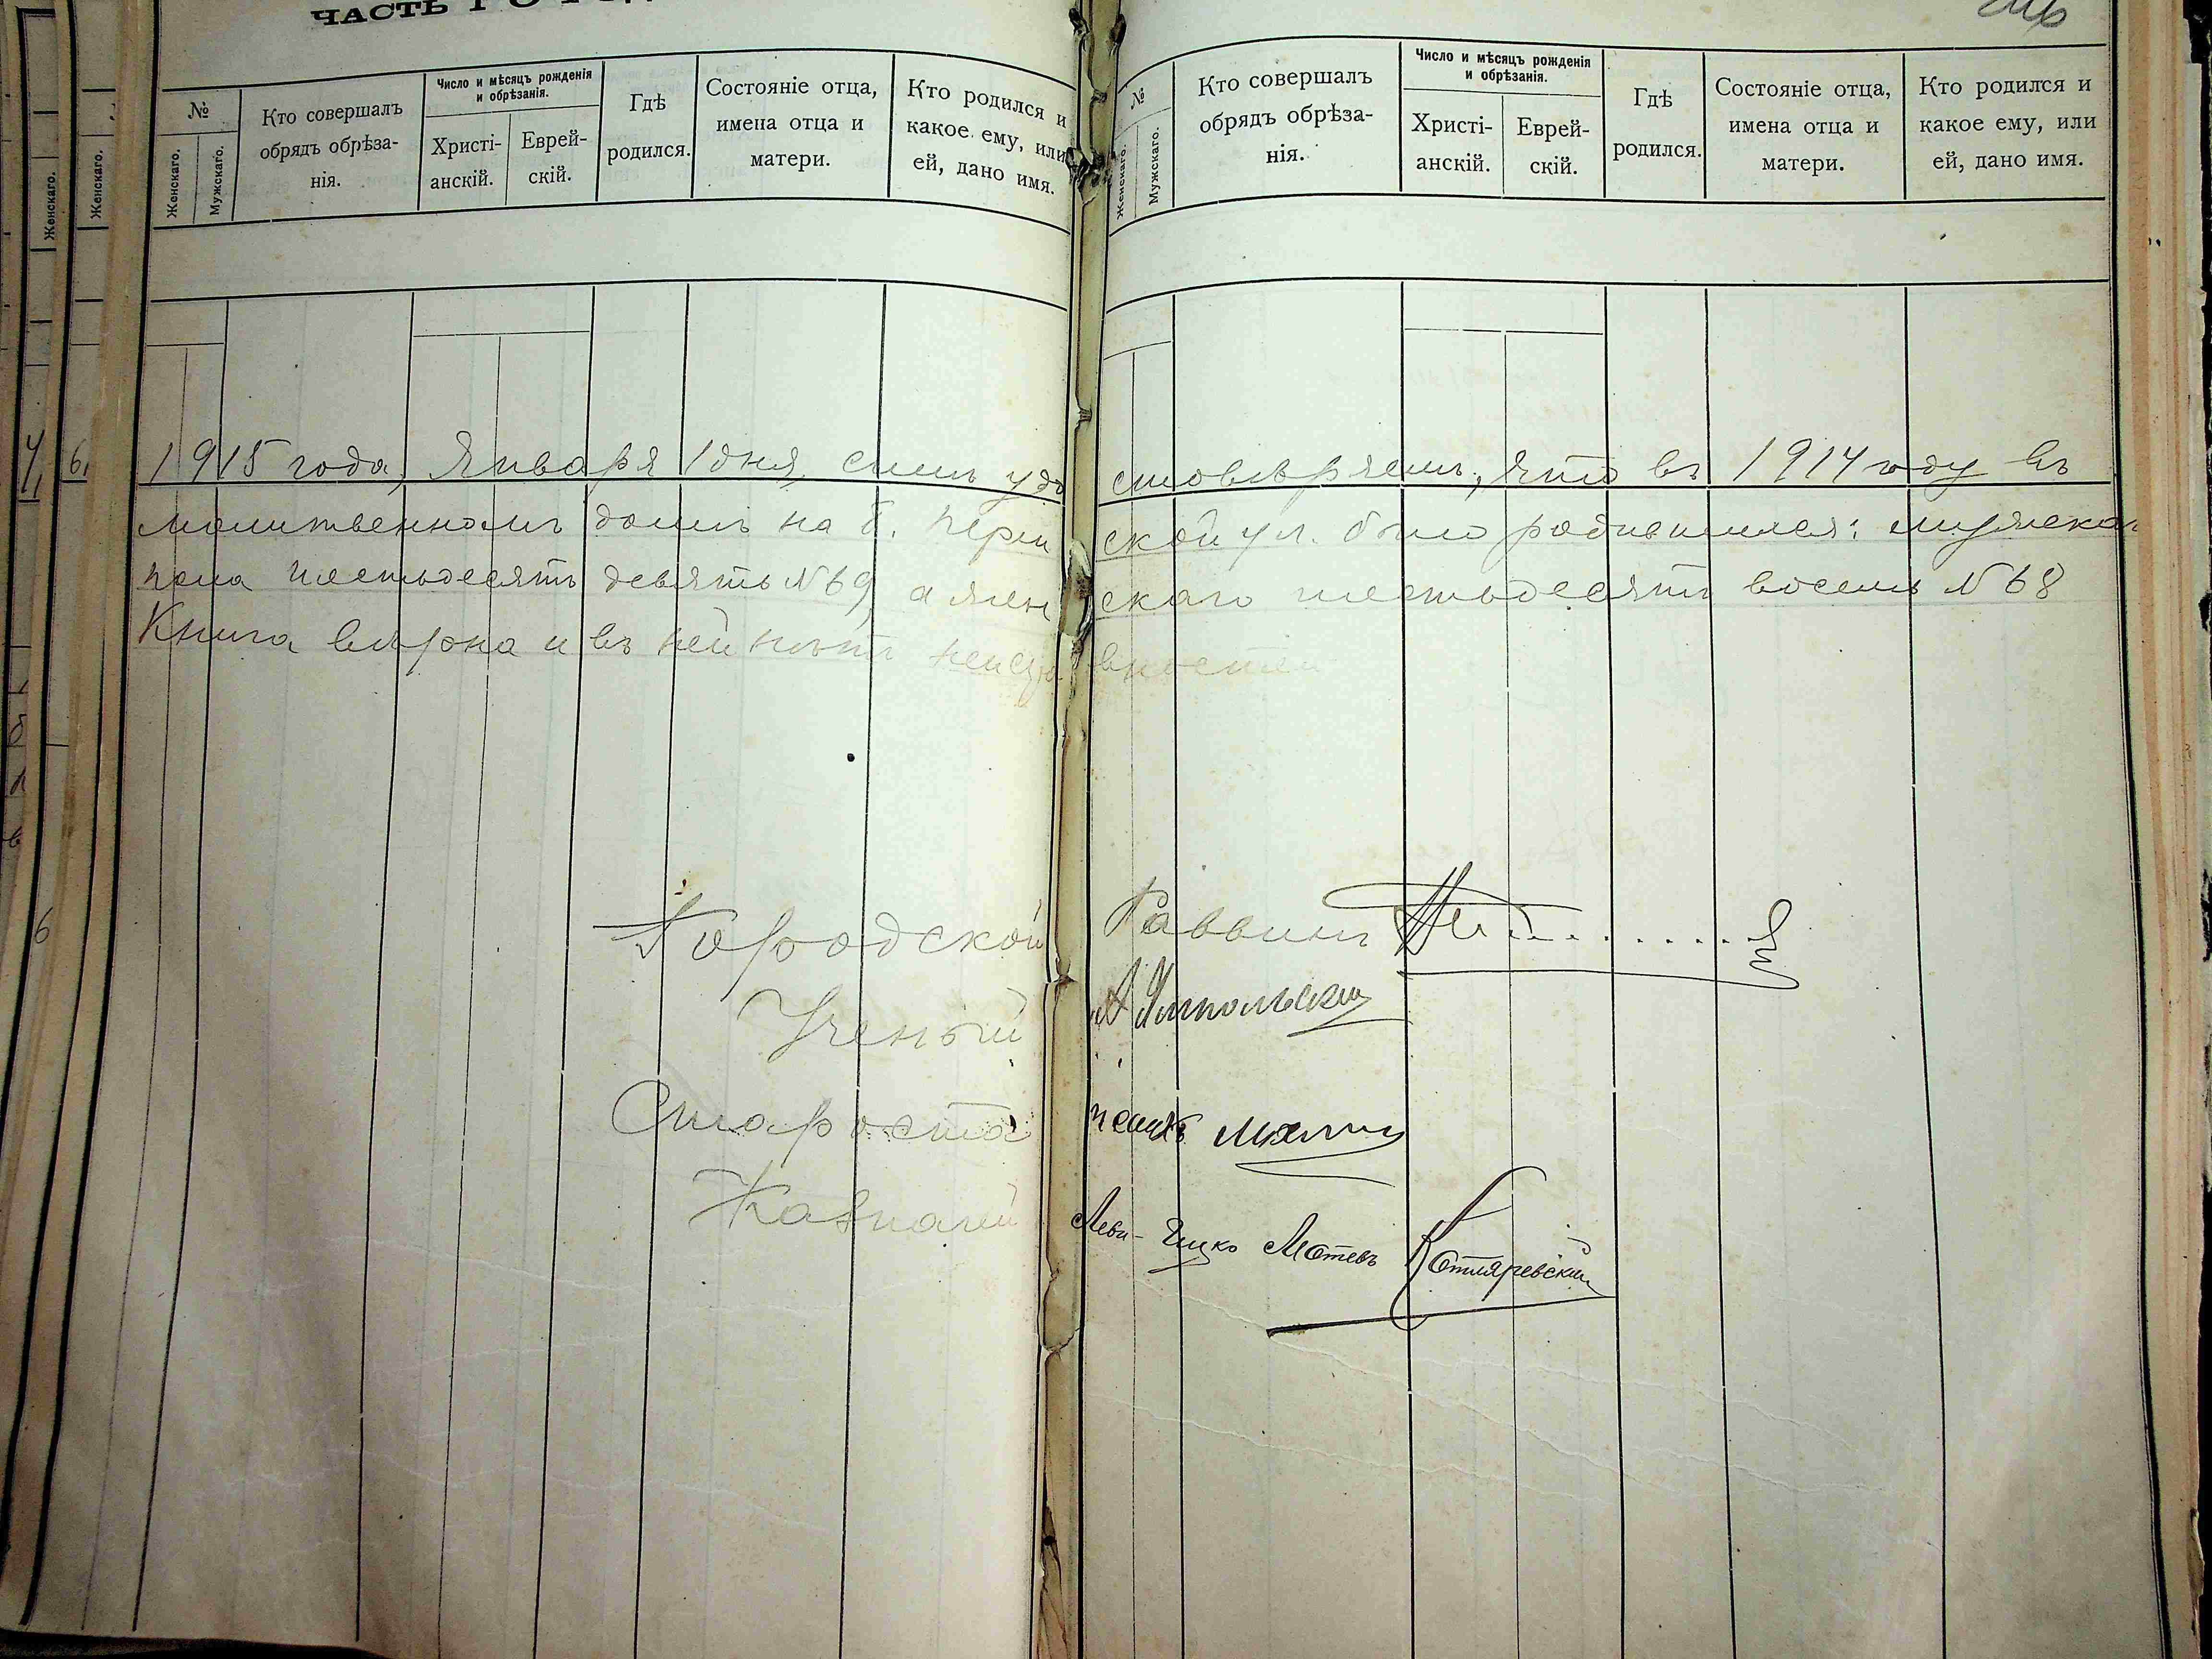 ЧАСТЬ I
№
Женскаго.
Мужскаго.
Кто совершалъ
обрядъ обрѣза-
нія.
Число и мѣсяцъ рожденія
и обрѣзанія.
Христі-
анскій.
Еврей-
скій.
Гдѣ
родился.
Состояніе отца,
имена отца и
матери.
Кто родился и
какое ему, или
ей, дано имя.
№
Женскаго.
Мужскаго.
Кто совершалъ
обрядъ обрѣза-
нія.
Число и мѣсяцъ рожденія
и обрѣзанія.
Христі-
анскій.
Еврей-
скій.
Гдѣ
родился.
Состояніе отца,
имена отца и
матери.
Кто родился и
какое ему, или
ей, дано имя.
Женскаго.
Женскаго.
1915 года, Января 1 дня, симъ удостовѣряемъ, что въ 1914 году въ
молитвенномъ домѣ на Б. Перм ской ул. было родившихся: мужска
пола шестьдесятъ девять №69, а женскаго шестьдесятъ восемь №68
Книга вѣрна и въ ней нѣтъ неисправностей
Городской Раввинъ
Ученый
Староста
Казначей Лейб-Ицко Мотевъ Котляревскій